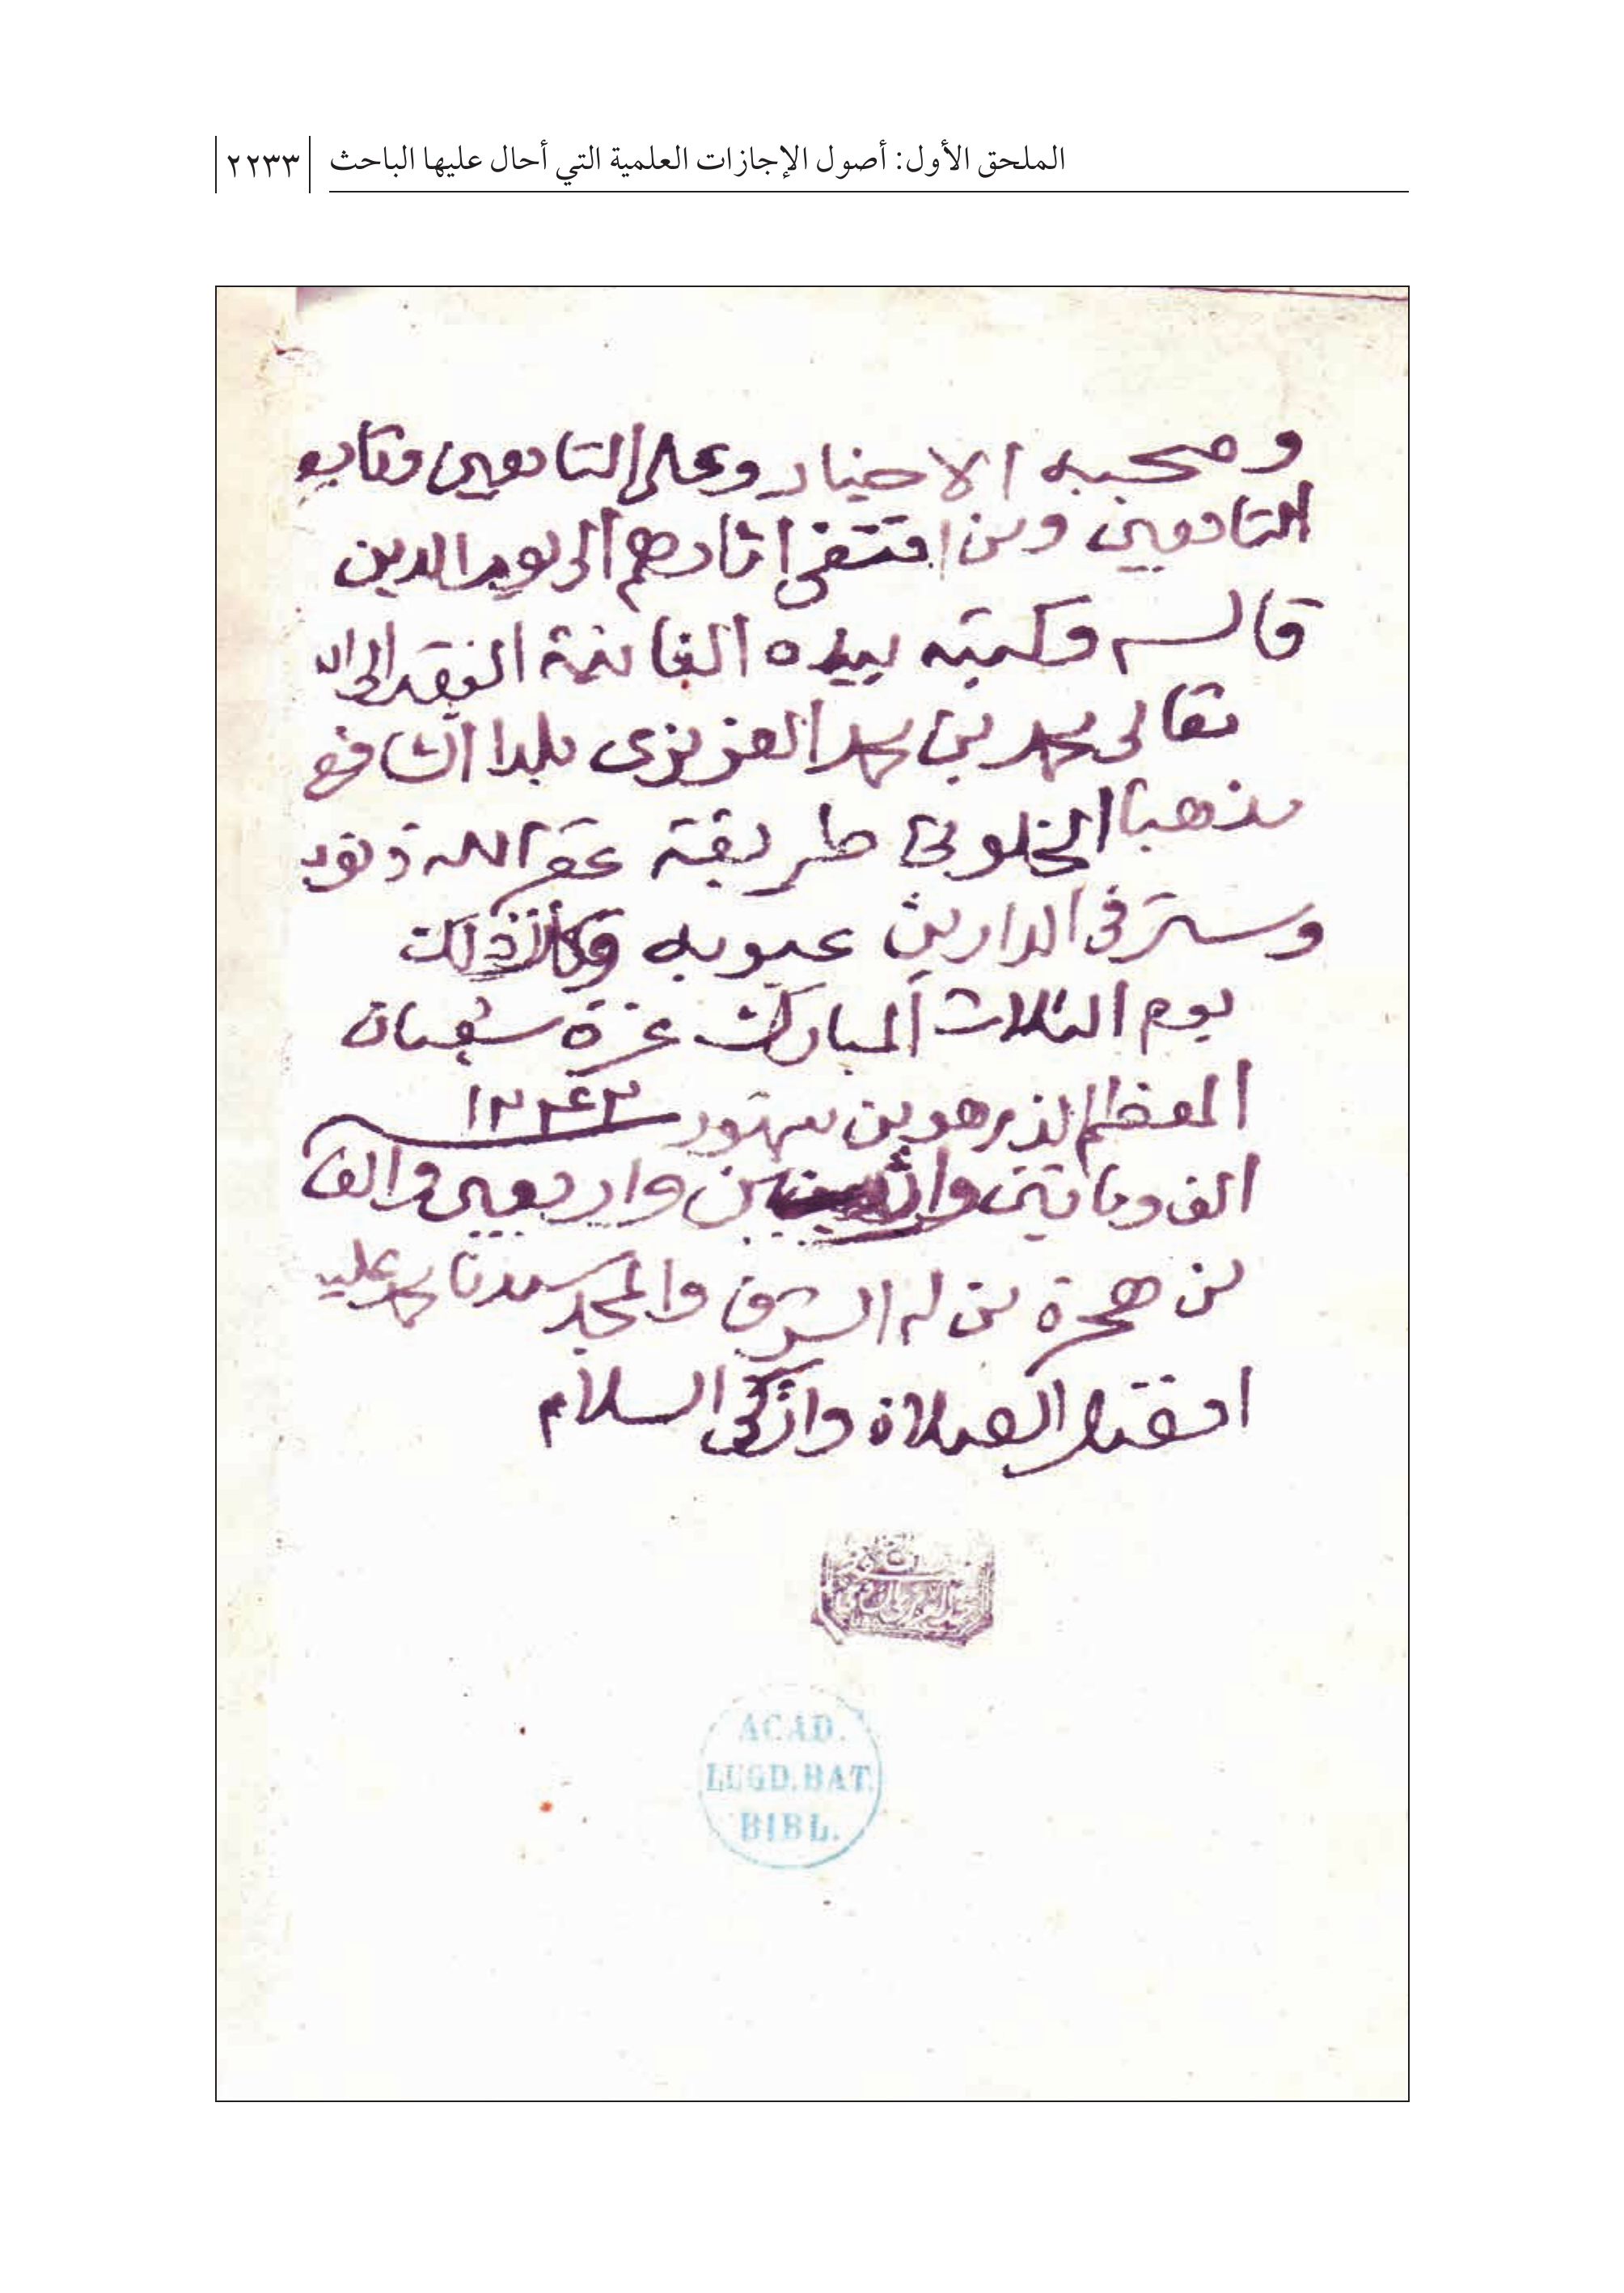 الملحق الأول: أصول الإجازات العلمية التي أحال عليها الباحث
٢٢٣٣
وصحبه الاخيار وعلى التابعين وتابع
التابعين ومن اقتفى اثارهم الى يوم الدين
قاله وكتبه بيده الفانية الفقير الى الله
تعالى محمد بن محمد العزيزى بلدا الشافعى
مذهبا الخلوتى طريقة غفر الله ذنوبه
وستر فى الدارين عيوبه وكان ذلك
يوم الثلاث المبارك غرة شعبان
المعظم الذى هو من شهور ١٢٤٣
الف ومائتين واربعين والف
من هجرة من له الشرف والمجد سيدنا محمد عليه
افضل الصلاة وازكى السلام
ACAD.
LUGD.BAT.
BIBL.